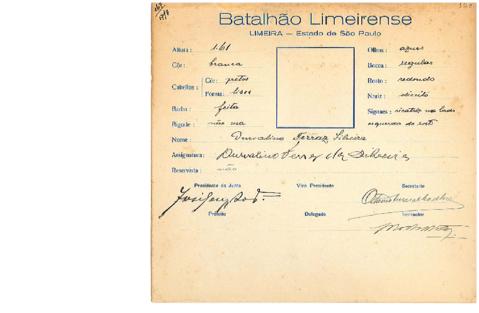 Batalhão Limeirense
LIMEIRA — Estado de São Paulo
Altura : 1.61
Côr : branca
Cabellos : Côr: pretos
Forma:
Barba : feita
Bigode : não usa
Olhos : azues
Bocca : regular
Rosto : redondo
Nariz :
Signaes : cicatriz no lado
esquerdo do rosto
Nome : Durvalino Ferraz Silveira
Assignatura: Durvalino Ferraz da Silveira
Reservista : não
Presidente da Junta Vice Presidente Secretario
Prefeito Delegado Instructor